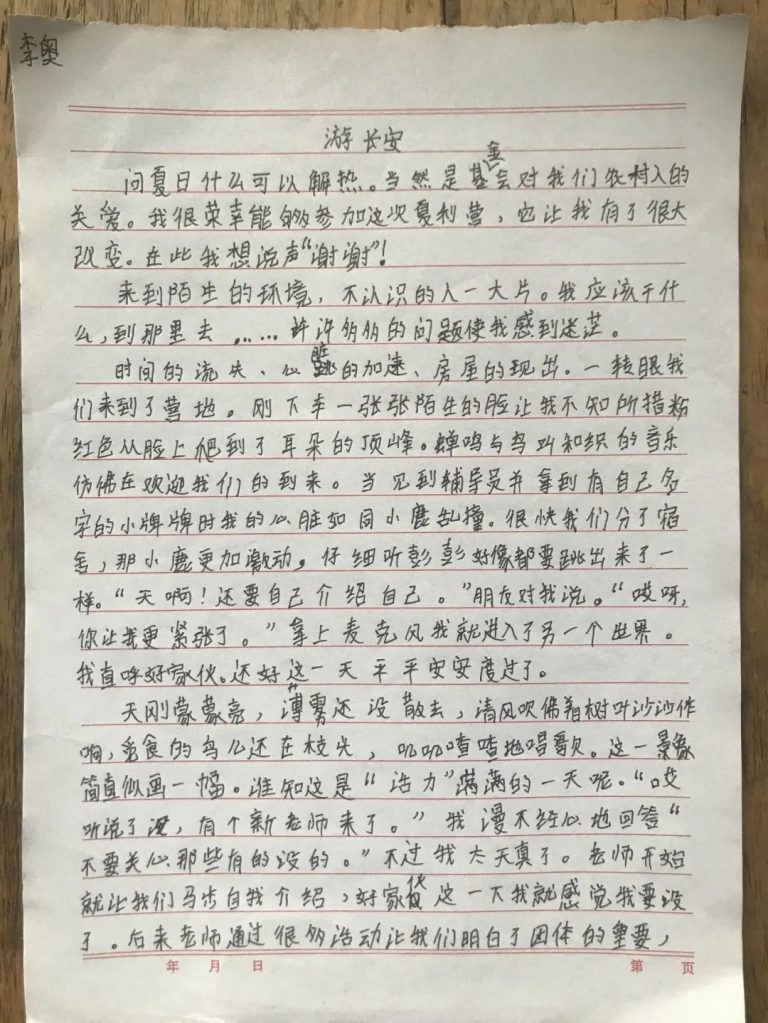 李奥
游长安
问夏日什么可以解热。当然是基金会对我们农村人的
关爱。我很荣幸能够参加这次夏利营，它让我有了很大
改变。在此我想说声“谢谢”!
来到陌生的环境，不认识的人一大片。我应该干什
么，到那里去……许许多多的问题使我感到迷茫。
时间的流失、心跳的加速、房屋的现出。一转眼我
们来到了营地。刚下车一张张陌生的脸让我不知所措粉
红色从脸上爬到了耳朵的顶峰。蝉鸣与鸟叫和织的音乐
仿佛在欢迎我们的到来。当见到辅导员并拿到有自己名
字的小牌牌时我的心脏如同小鹿乱撞。很快我们分了宿
舍，那小鹿更加激动。仔细听彭彭好像都要跳出来了一
样。“天啊！还要自己介绍自己。”朋友对我说。“哎呀，
你让我更紧张了。”拿上麦克风我就进入了另一个世界。
我直呼好家伙。还好这一天平平安安度过了。
天刚蒙蒙亮，薄雾还没散去，清风吹佛着树叶沙沙作
响，觅食的鸟儿还在枝头，叽叽喳喳地唱歌。这一景象
简直似画一幅。谁知这是“活力”满满的一天呢。“哎
听说了没，有个新老师来了。”我漫不经心地回答“
不要关心那些有的没的。”不过我太天真了。老师开始
就让我们马步自我介绍，好家伙这一下我就感觉我要没
了。后来老师通过很多活动让我们明白了团体的重要，
年 月 日
第 页